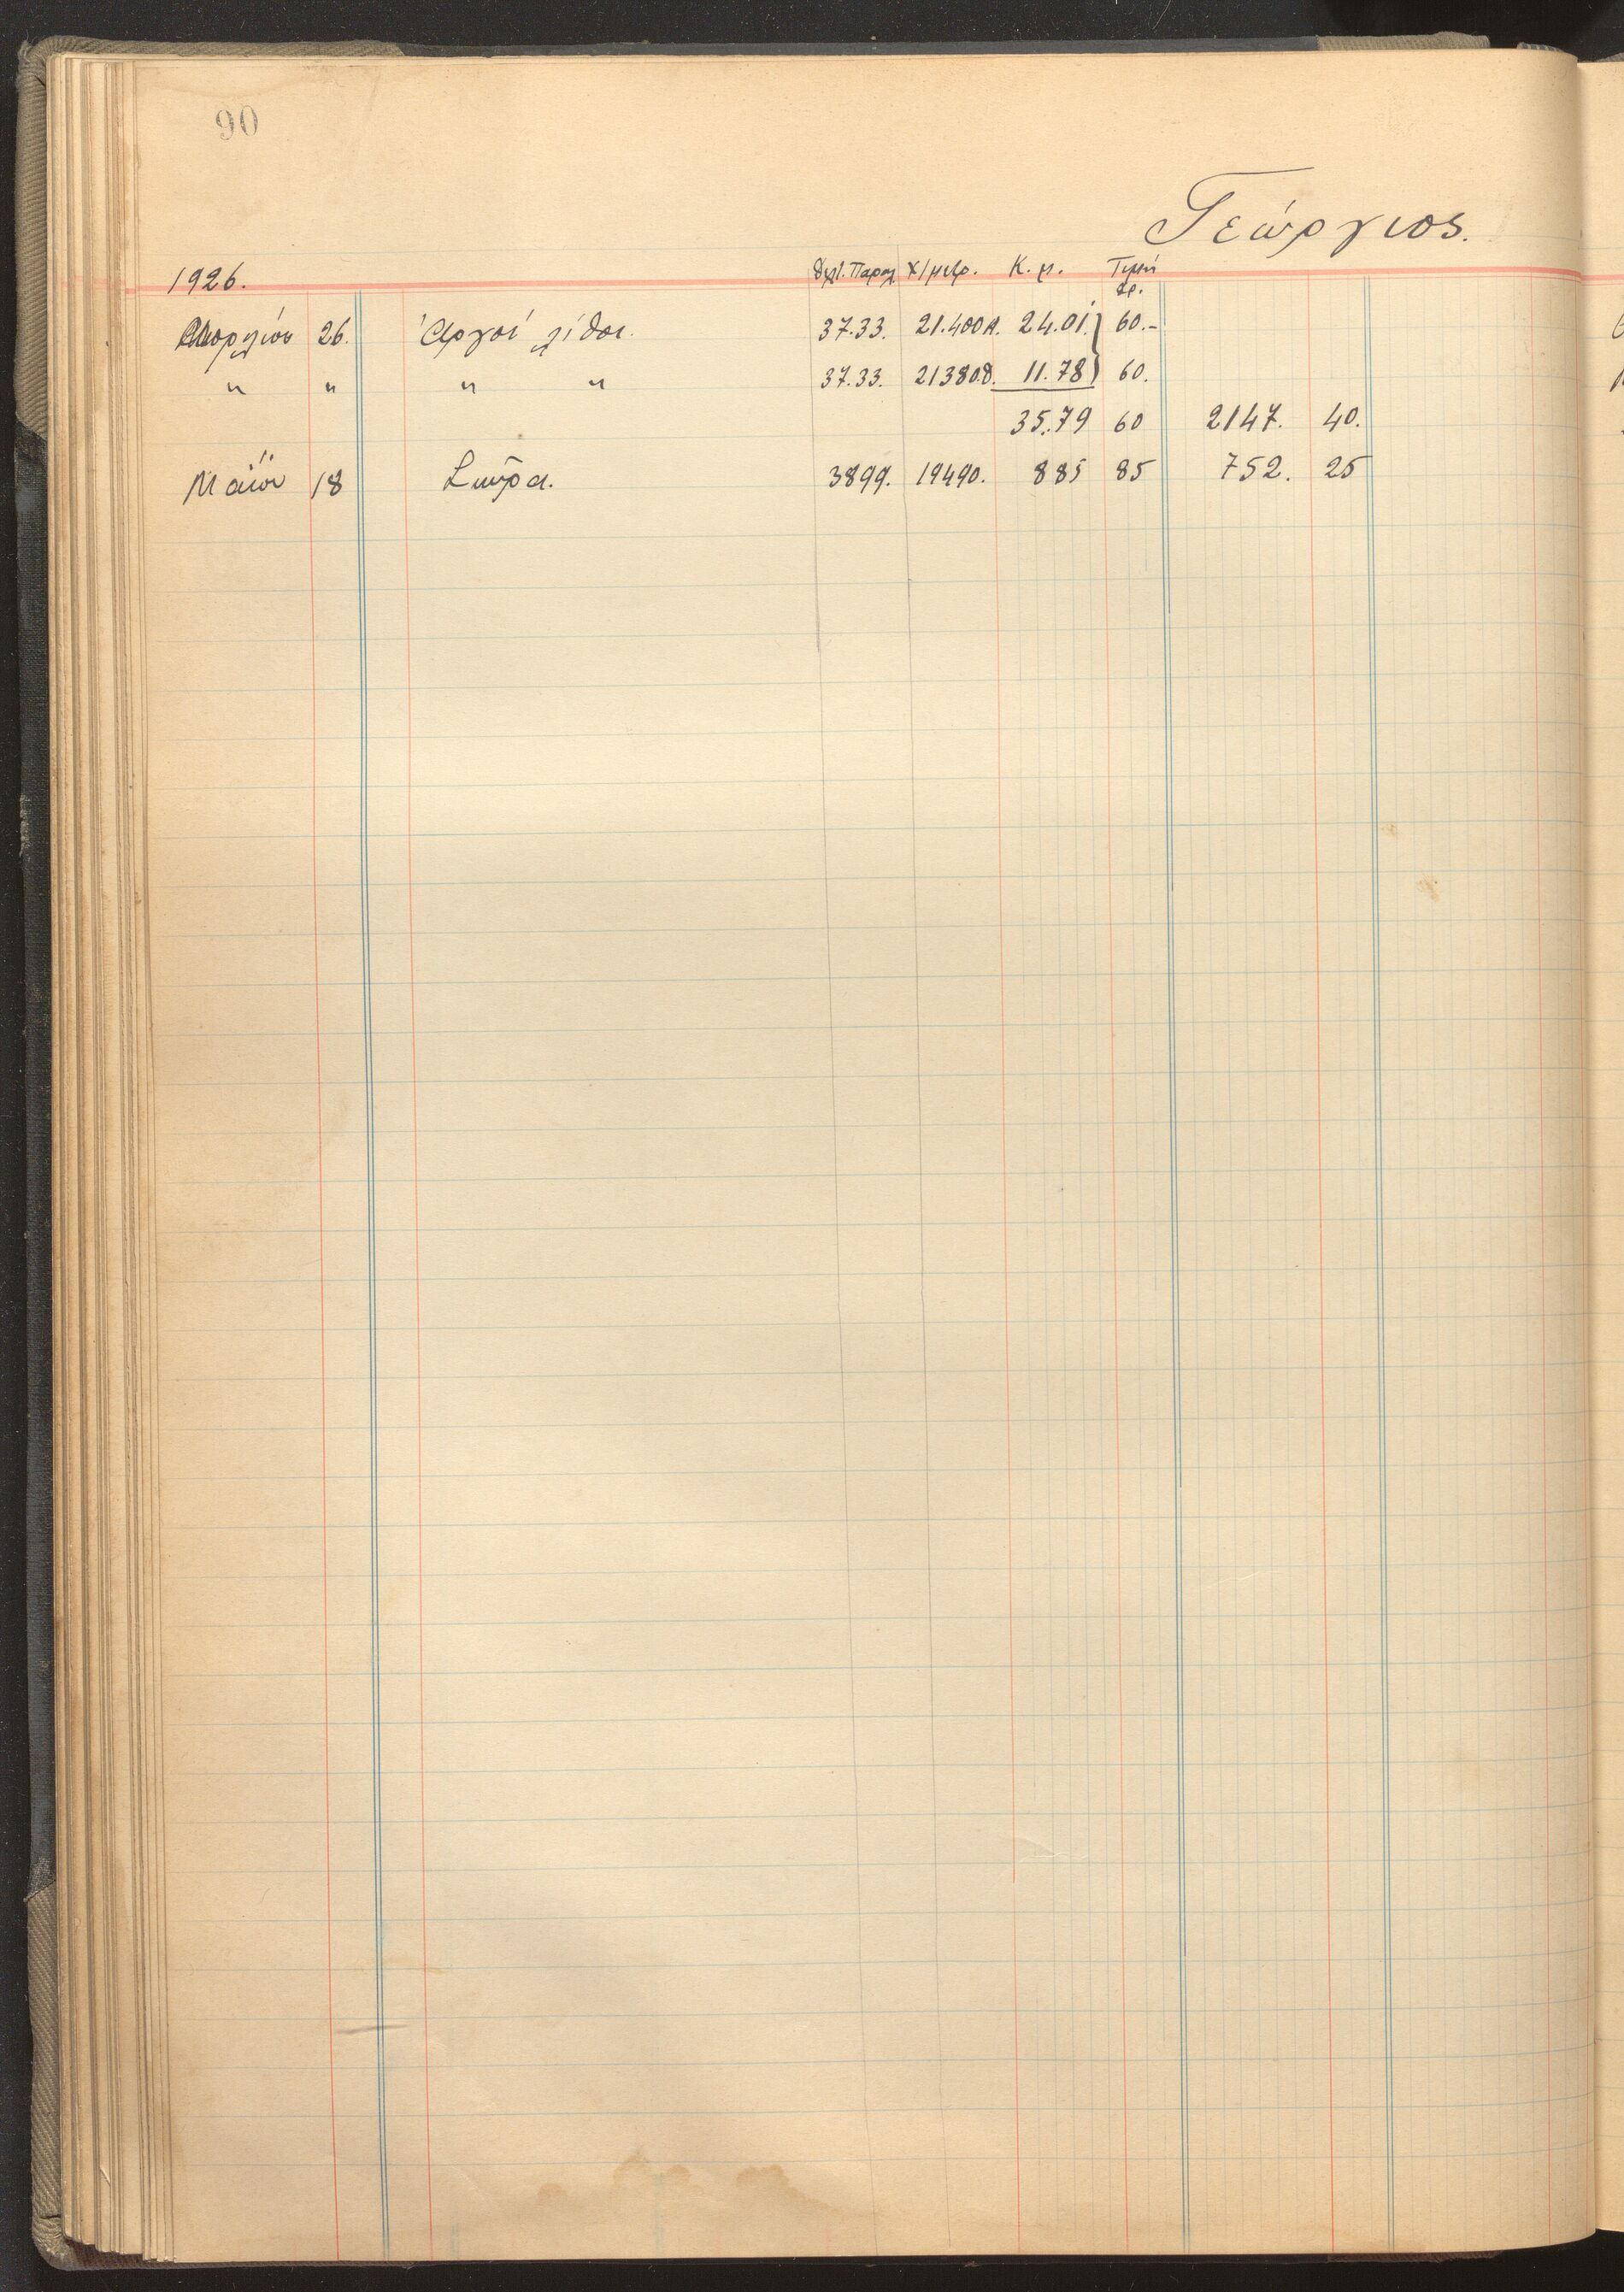 90
Γεώργιος.
1926. Δελτ. Παραλ. Χ/μετρ. Κ. μ. Τιμή
Δρ.
Ἀπριλίου 26. Ἀργοί λίθοι. 37.33. 21.400 Α. 24.01. } 60.-
" " " " 37.33. 21380.δ. 11.78 } 60.
35.79 60 2147. 40.
Μαΐου 18 Σκῦρα. 3899. 19490. 885 85 752. 25